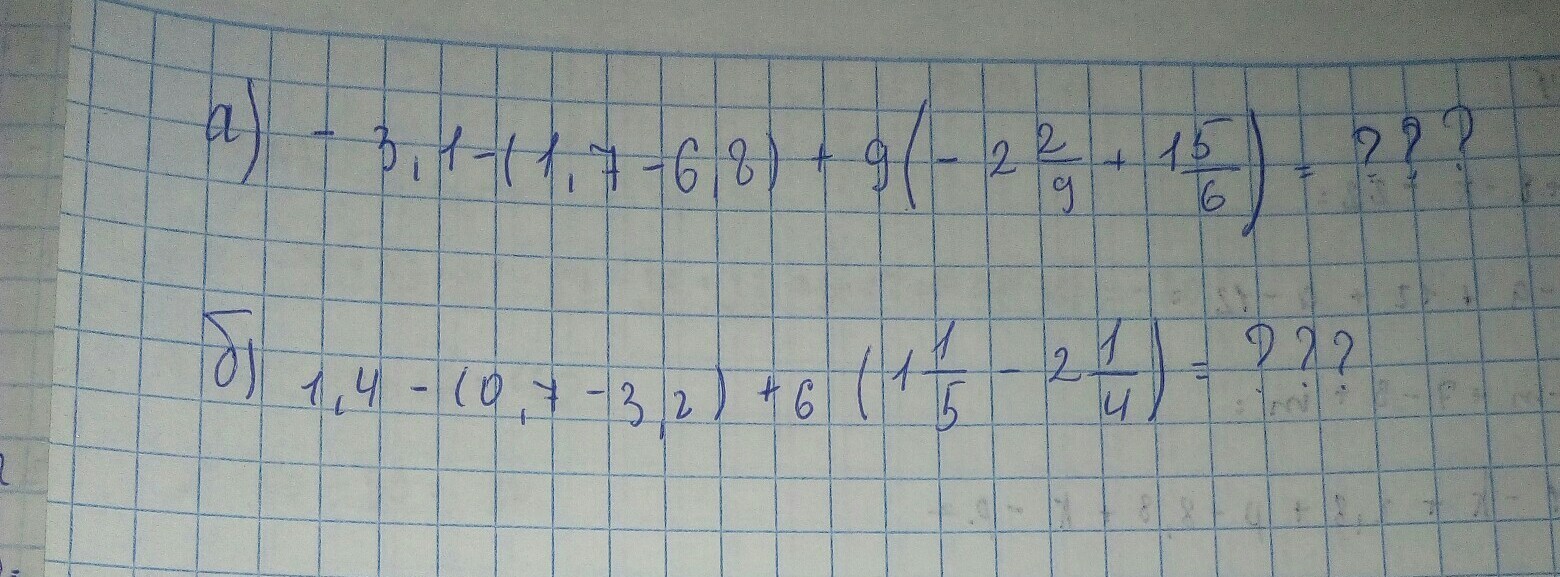 а) - 3,1-(1,7-6,8) + 9(-2 2/9 + 1 5/6) = ???
б) 1,4 - (0,7-3,2) + 6 (1 1/5 - 2 1/4) = ???